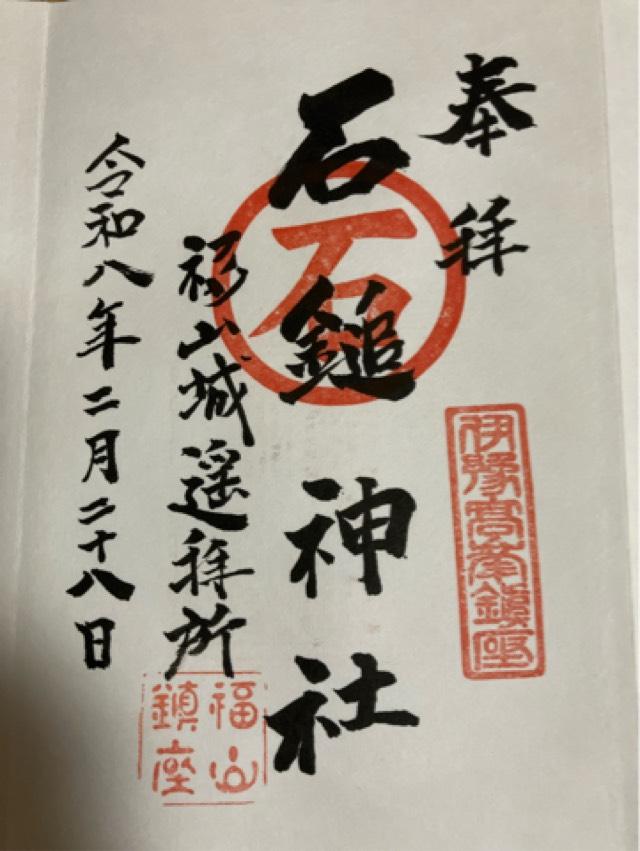 奉拝
伊豫高嶺鎮座
石
石鎚神社
福山城遥拝所
福山鎮座
令和八年二月二十八日